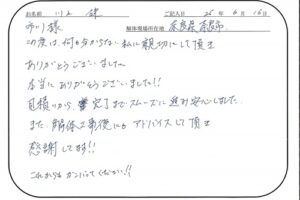 お名前 川上 様 ご記入日 25年6月16日
解体現場所在地 奈良県奈良市
市川様
この度は、何も分からない私に親切にして頂き
ありがとうございました
本当にありがとうございました!!
見積りから、完了までスムーズに進み安心しました。
また、解体工事後にもアドバイスして頂き
感謝してます!!
これからもガンバってください!!